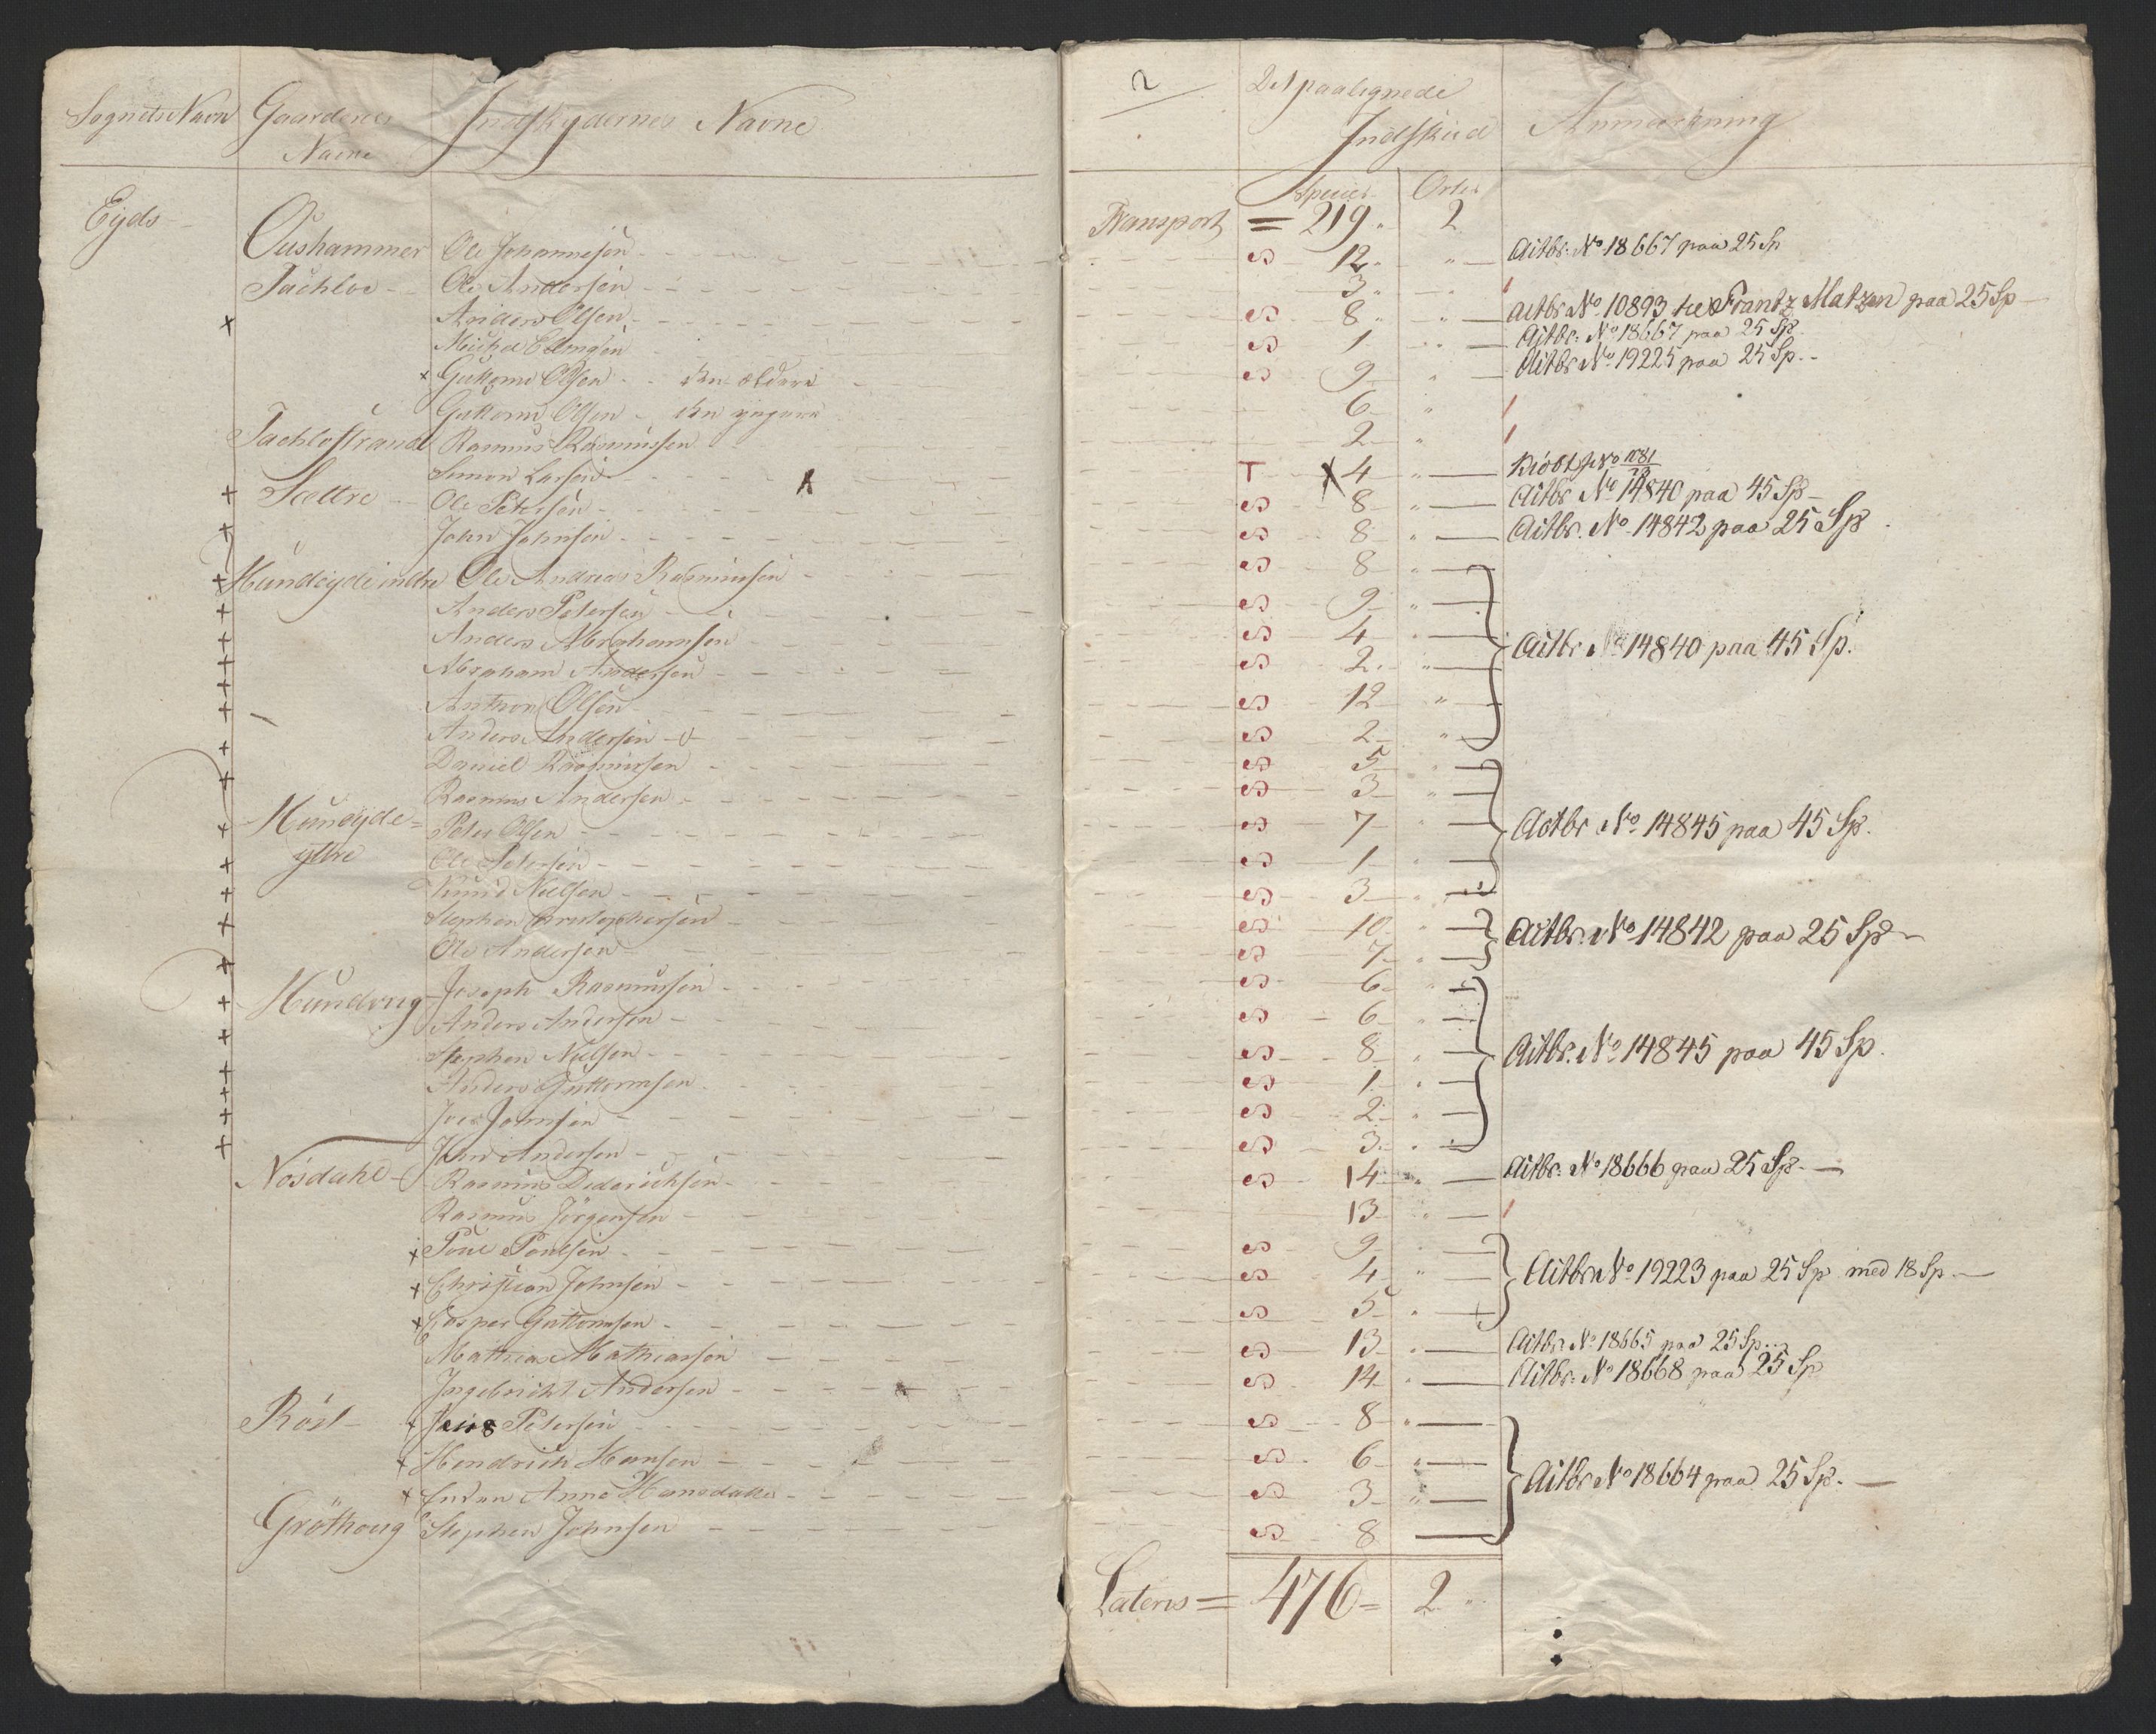 Sognets Navn Gaardenes Navne Indskydernes Navne
2 Det paalignede Indskud Anmærkning
Species Orter
Transport = 219 " 2
Eyds
Oushammer Ole Johannesen S 12 " Actbr. No 18667 paa 25 Sp
Tachloe Ole Andersen 3 "
Anders Olsen S 8 " Actbr. No 10893 til Frantz Matzen paa 25 Sp
Michel Ellingsen S 1 " Actbr. No 18667 paa 25 Sp
Guttorm Olsen den ældere S 9 " Actbr. No 19225 paa 25 Sp.
Guttorm Olsen den yngere 6 "
Tachlostrand Rasmus Rasmussen 2 "
Simon Larsen T 4 "
Sættre Ole Petersen S 8 " Actbr. No 14840 paa 45 Sp
John Johnsen S 8 " Actbr. No 14842 paa 25 Sp
Hundeyde indre Ole Andreas Rasmussen S 8 "
Anders Petersen S 9 "
Anders Abrahamsen S 4 " Actbr. No 14840 paa 45 Sp.
Abraham Andersen S 2 "
Anthon Olsen S 12 "
Anders Andersen S 2 "
Daniel Rasmussen S 5 "
Rasmus Andersen S 3 "
Hundeyde ytre Peter Olsen S 7 Actbr No 14845 paa 45 Sp.
Ole Petersen S 1 "
Knud Nielsen S 3 "
Stephen Christophersen S 10 " Actbr. No 14842 paa 25 Sp
Ole Andersen S 7 "
Hundvrig Joseph Rasmussen S 6 "
Anders Andersen S 6 "
Stephen Nielsen S 8 " Actbr. No 14845 paa 45 Sp.
Anders Guttormsen S 1 "
Joes Johnsen S 2 "
John Andersen S 3 "
Nosdahl Rasmus Dideriechsen S 14 " Actbr. No 18666 paa 25 Sp.
Rasmus Jörgensen 13 "
Poul Poulsen S 9 "
Christian Johnsen S 4 " Actbr. No 19223 paa 25 Sp med 18 Sp.
Casper Guttormsen S 5 "
Mathias Mathiassen S 13 " Actbr. No 18665 paa 25 Sp.
Ingebricht Andersen S 14 " Actbr. No 18668 paa 25 Sp
Röst Jens Petersen S 8 "
Hendrich Hansen S 6 "
Enken Anne Hansdatter S 3 " Actbr No 18664 paa 25 Sp.
Gröthoug Stephen Johnsen S 8
Lateris = 476 = 2 "